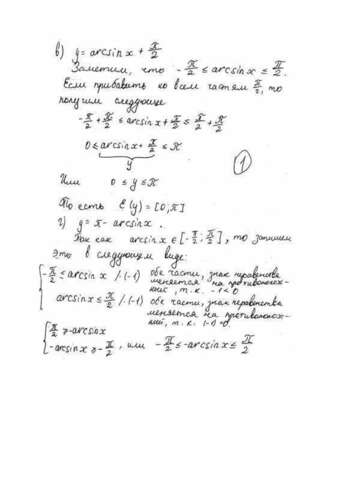 в) y = arcsin x + π/2
Заметим, что -π/2 ≤ arcsin x ≤ π/2.
Если прибавить ко всем частям π/2, то
получим следующее
-π/2 + π/2 ≤ arcsin x + π/2 ≤ π/2 + π/2
0 ≤ arcsin x + π/2 ≤ π
y
①
Или 0 ≤ y ≤ π
То есть E(y) = [0; π]
г) y = π - arcsin x.
Так как arcsin x ∈ [-π/2; π/2], то запишем
это в следующем виде:
-π/2 ≤ arcsin x /·(-1) обе части, знак неравенства
меняется на противополож-
ный, т.к. -1<0
arcsin x ≤ π/2 /·(-1) обе части, знак неравенства
меняется на противополож-
ный, т.к. (-1)<0
π/2 ≥ -arcsin x
-arcsin x ≥ -π/2, или -π/2 ≤ -arcsin x ≤ π/2